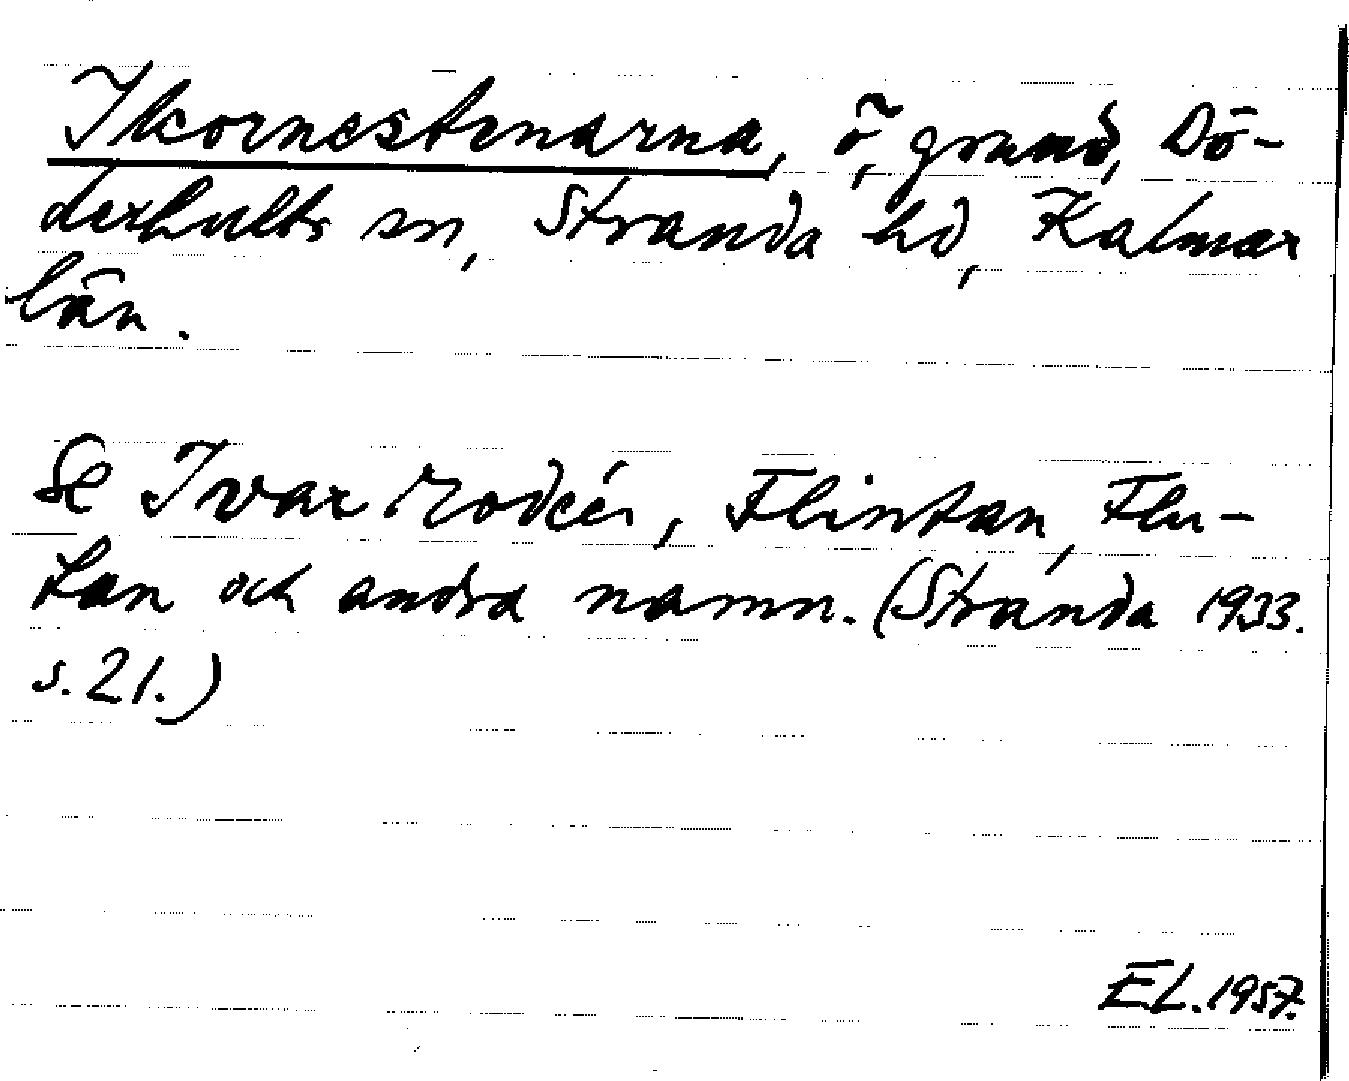 Ikornestenarna, ö, grund, Dö-
derhults sn, Stranda hd, Kalmar
län.
Se Ivar Modéer, Flintan, Flu-
tan och andra namn. (Stranda 1933.
s. 21.)
EL. 1957.